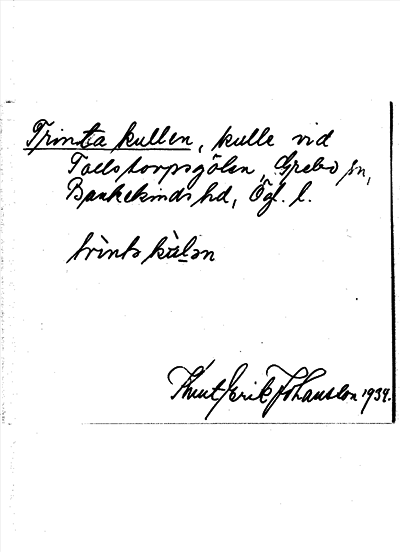 Trinta kullen, kulle vid
Tollstorpsgölen, Grebo sn,
Bankekinds hd, Ögl. l.
trìnta kùlən
Knut Erik Johansson 1934.